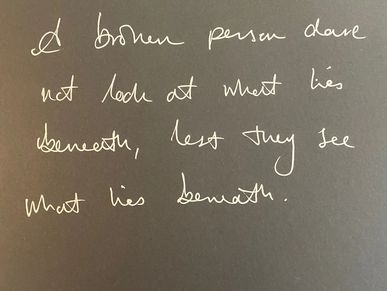 A broken person dare
not look at what lies
beneath, lest they see
what lies beneath.